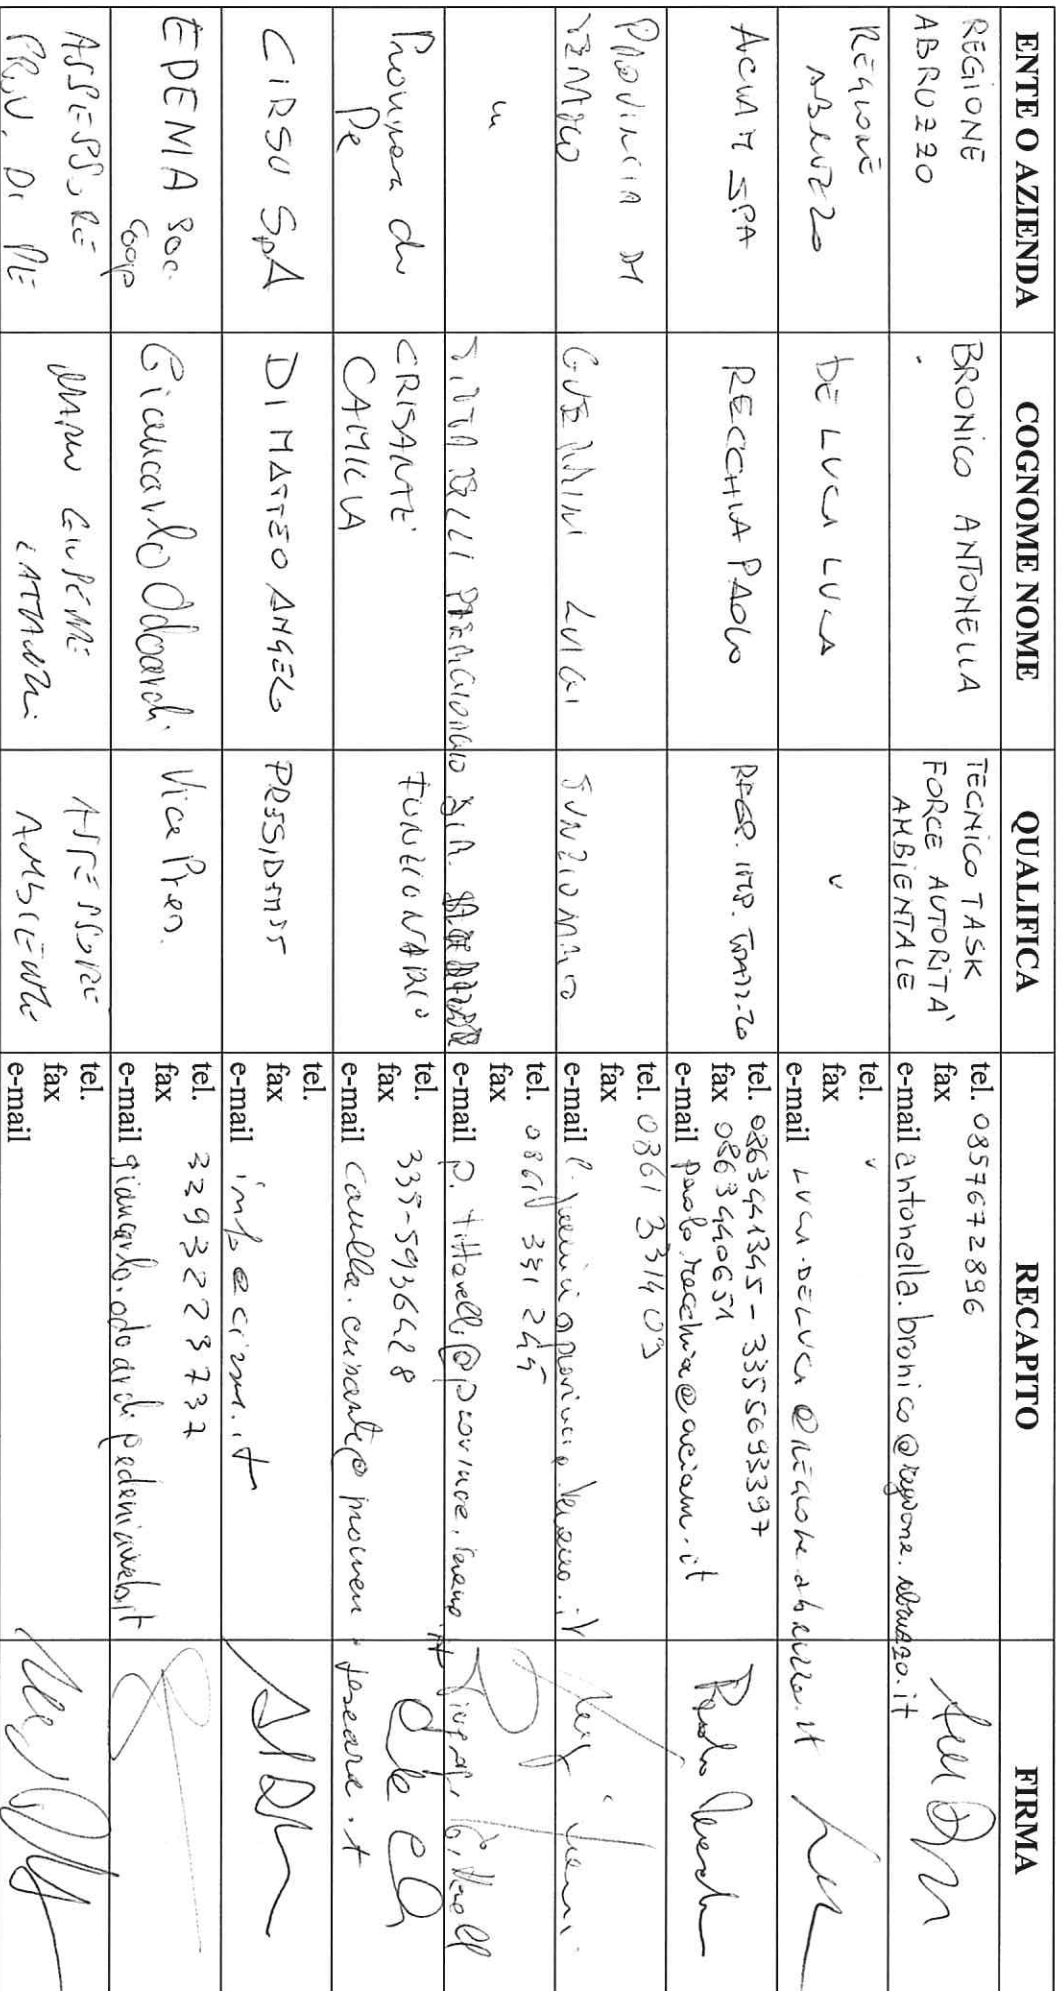 ENTE O AZIENDA COGNOME NOME QUALIFICA RECAPITO FIRMA
REGIONE ABRUZZO
BRONICO ANTONELLA
TECNICO TASK
FORCE AUTORITA'
AMBIENTALE
tel. 0857672896
fax
e-mail antonella.bronico@regione.abruzzo.it
REGIONE
ABRUZZO
DE LUCA LUCA
v
tel. v
fax
e-mail LUCA.DELUCA@REGIONE.abruzzo.it
ACIAM SPA
RECCHIA PAOLO
RESP. IMP.
tel. 0863441345 - 3355693397
fax 0863440651
e-mail paolo.recchia@aciam.it
PROVINCIA DI
TERAMO
LUIGI
FUNZIONARIO
tel. 0861331403
fax
e-mail
"
PIERGIORGIO DIR.
tel. 0861 331 245
fax
e-mail p.tittarelli@provincia.teramo.it
Provincia di
Pe
CRISANTE
CAMILLA
FUNZIONARIO
tel. 335-5936428
fax
e-mail camilla.crisante@provincia.pescara.it
CIRSU SpA
DI MATTEO ANGELO
PRESIDENTE
tel.
fax
e-mail info@cirsu.it
EPENIA Soc.
Coop
Giancarlo Odoardi
Vice Pres.
tel. 3293223737
fax
e-mail
ASSESSORE
PROV. DI PE
ASSESSORE
AMBIENTE
tel.
fax
e-mail